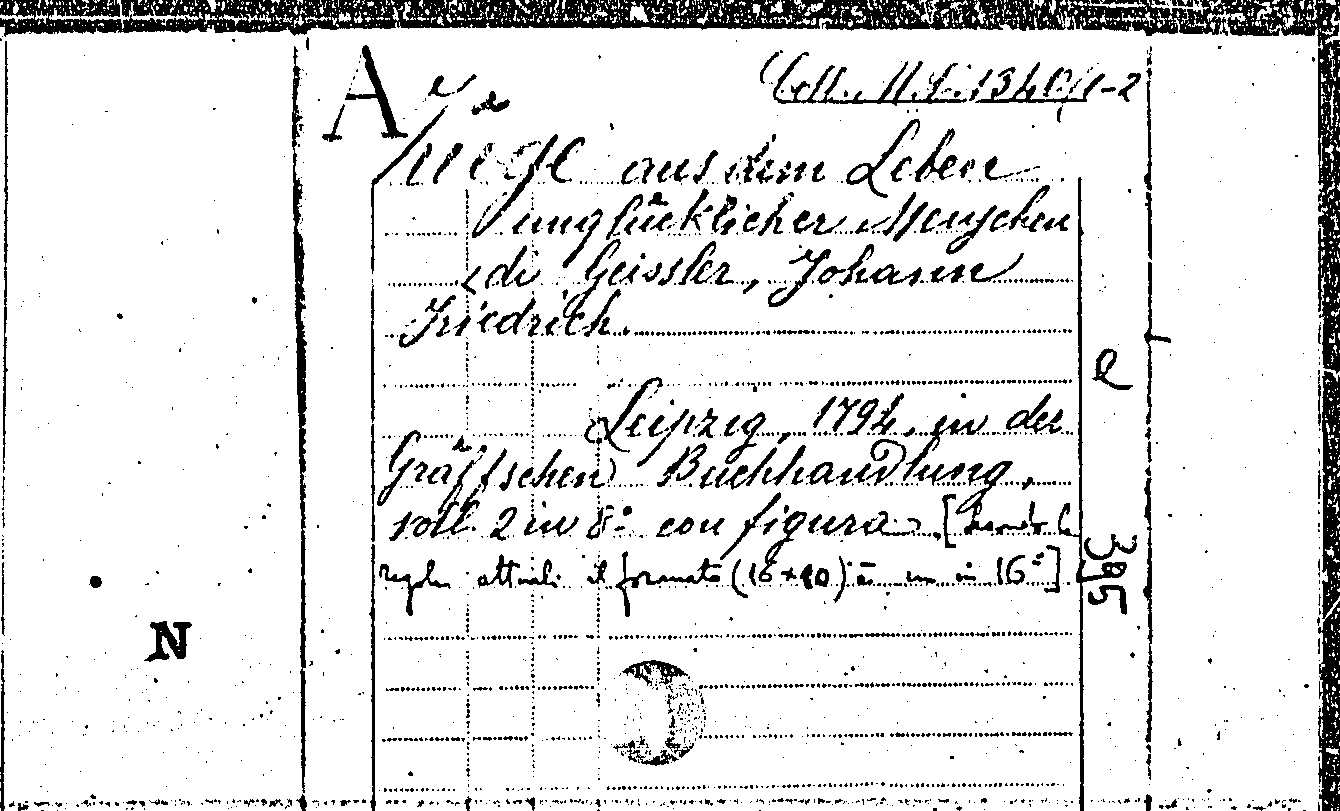 A
Coll. It. S. 1340/1-2
Züege aus dem Leben
unglücklicher Menschen
di Geissler, Johann
Friedrich.
e
Leipzig, 1794, in der
Gräffschen Buchhandlung,
voll. 2 in 8° con figura. [secondo le
regole attuali il formato (16×10) è un in 16°]
395
N